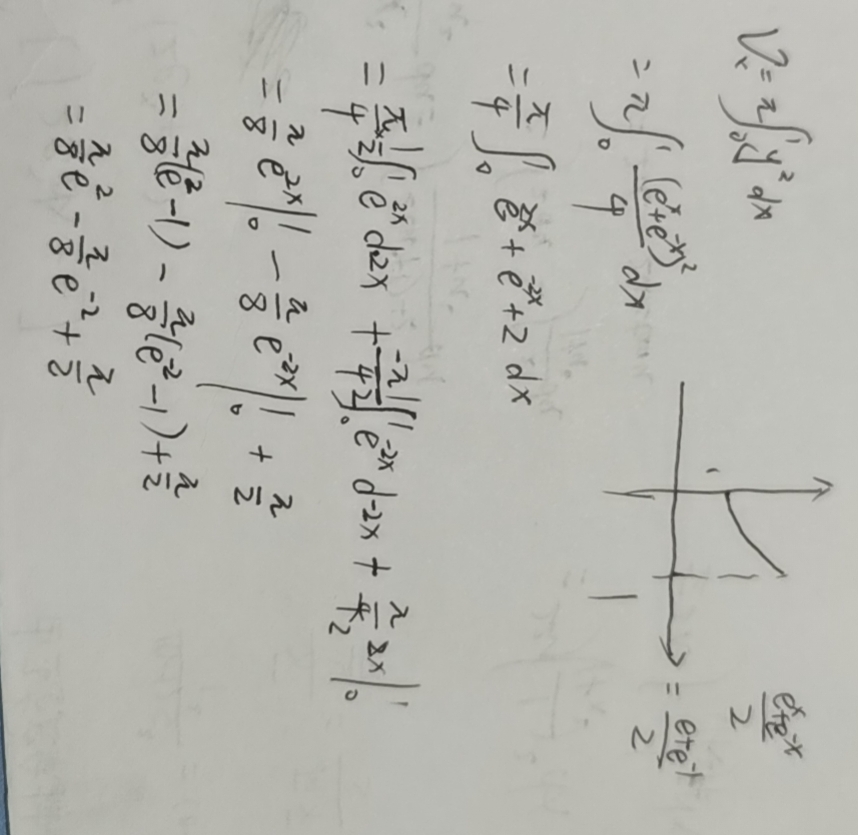 Vₓ = π∫₀¹ y² dx
= π∫₀¹ (eˣ+e⁻ˣ)²/4 dx
= π/4 ∫₀¹ e²ˣ + e⁻²ˣ + 2 dx
= π/4 × 1/2 ∫₀¹ e²ˣ d2x + -π/4 1/2 ∫₀¹ e⁻²ˣ d-2x + π/4 2x |₀¹
= π/8 e²ˣ |₀¹ - π/8 e⁻²ˣ |₀¹ + π/2
= π/8 (e²-1) - π/8 (e⁻²-1) + π/2
= π/8 e² - π/8 e⁻² + π/2
1
eˣ+e⁻ˣ/2
= e+e⁻¹/2